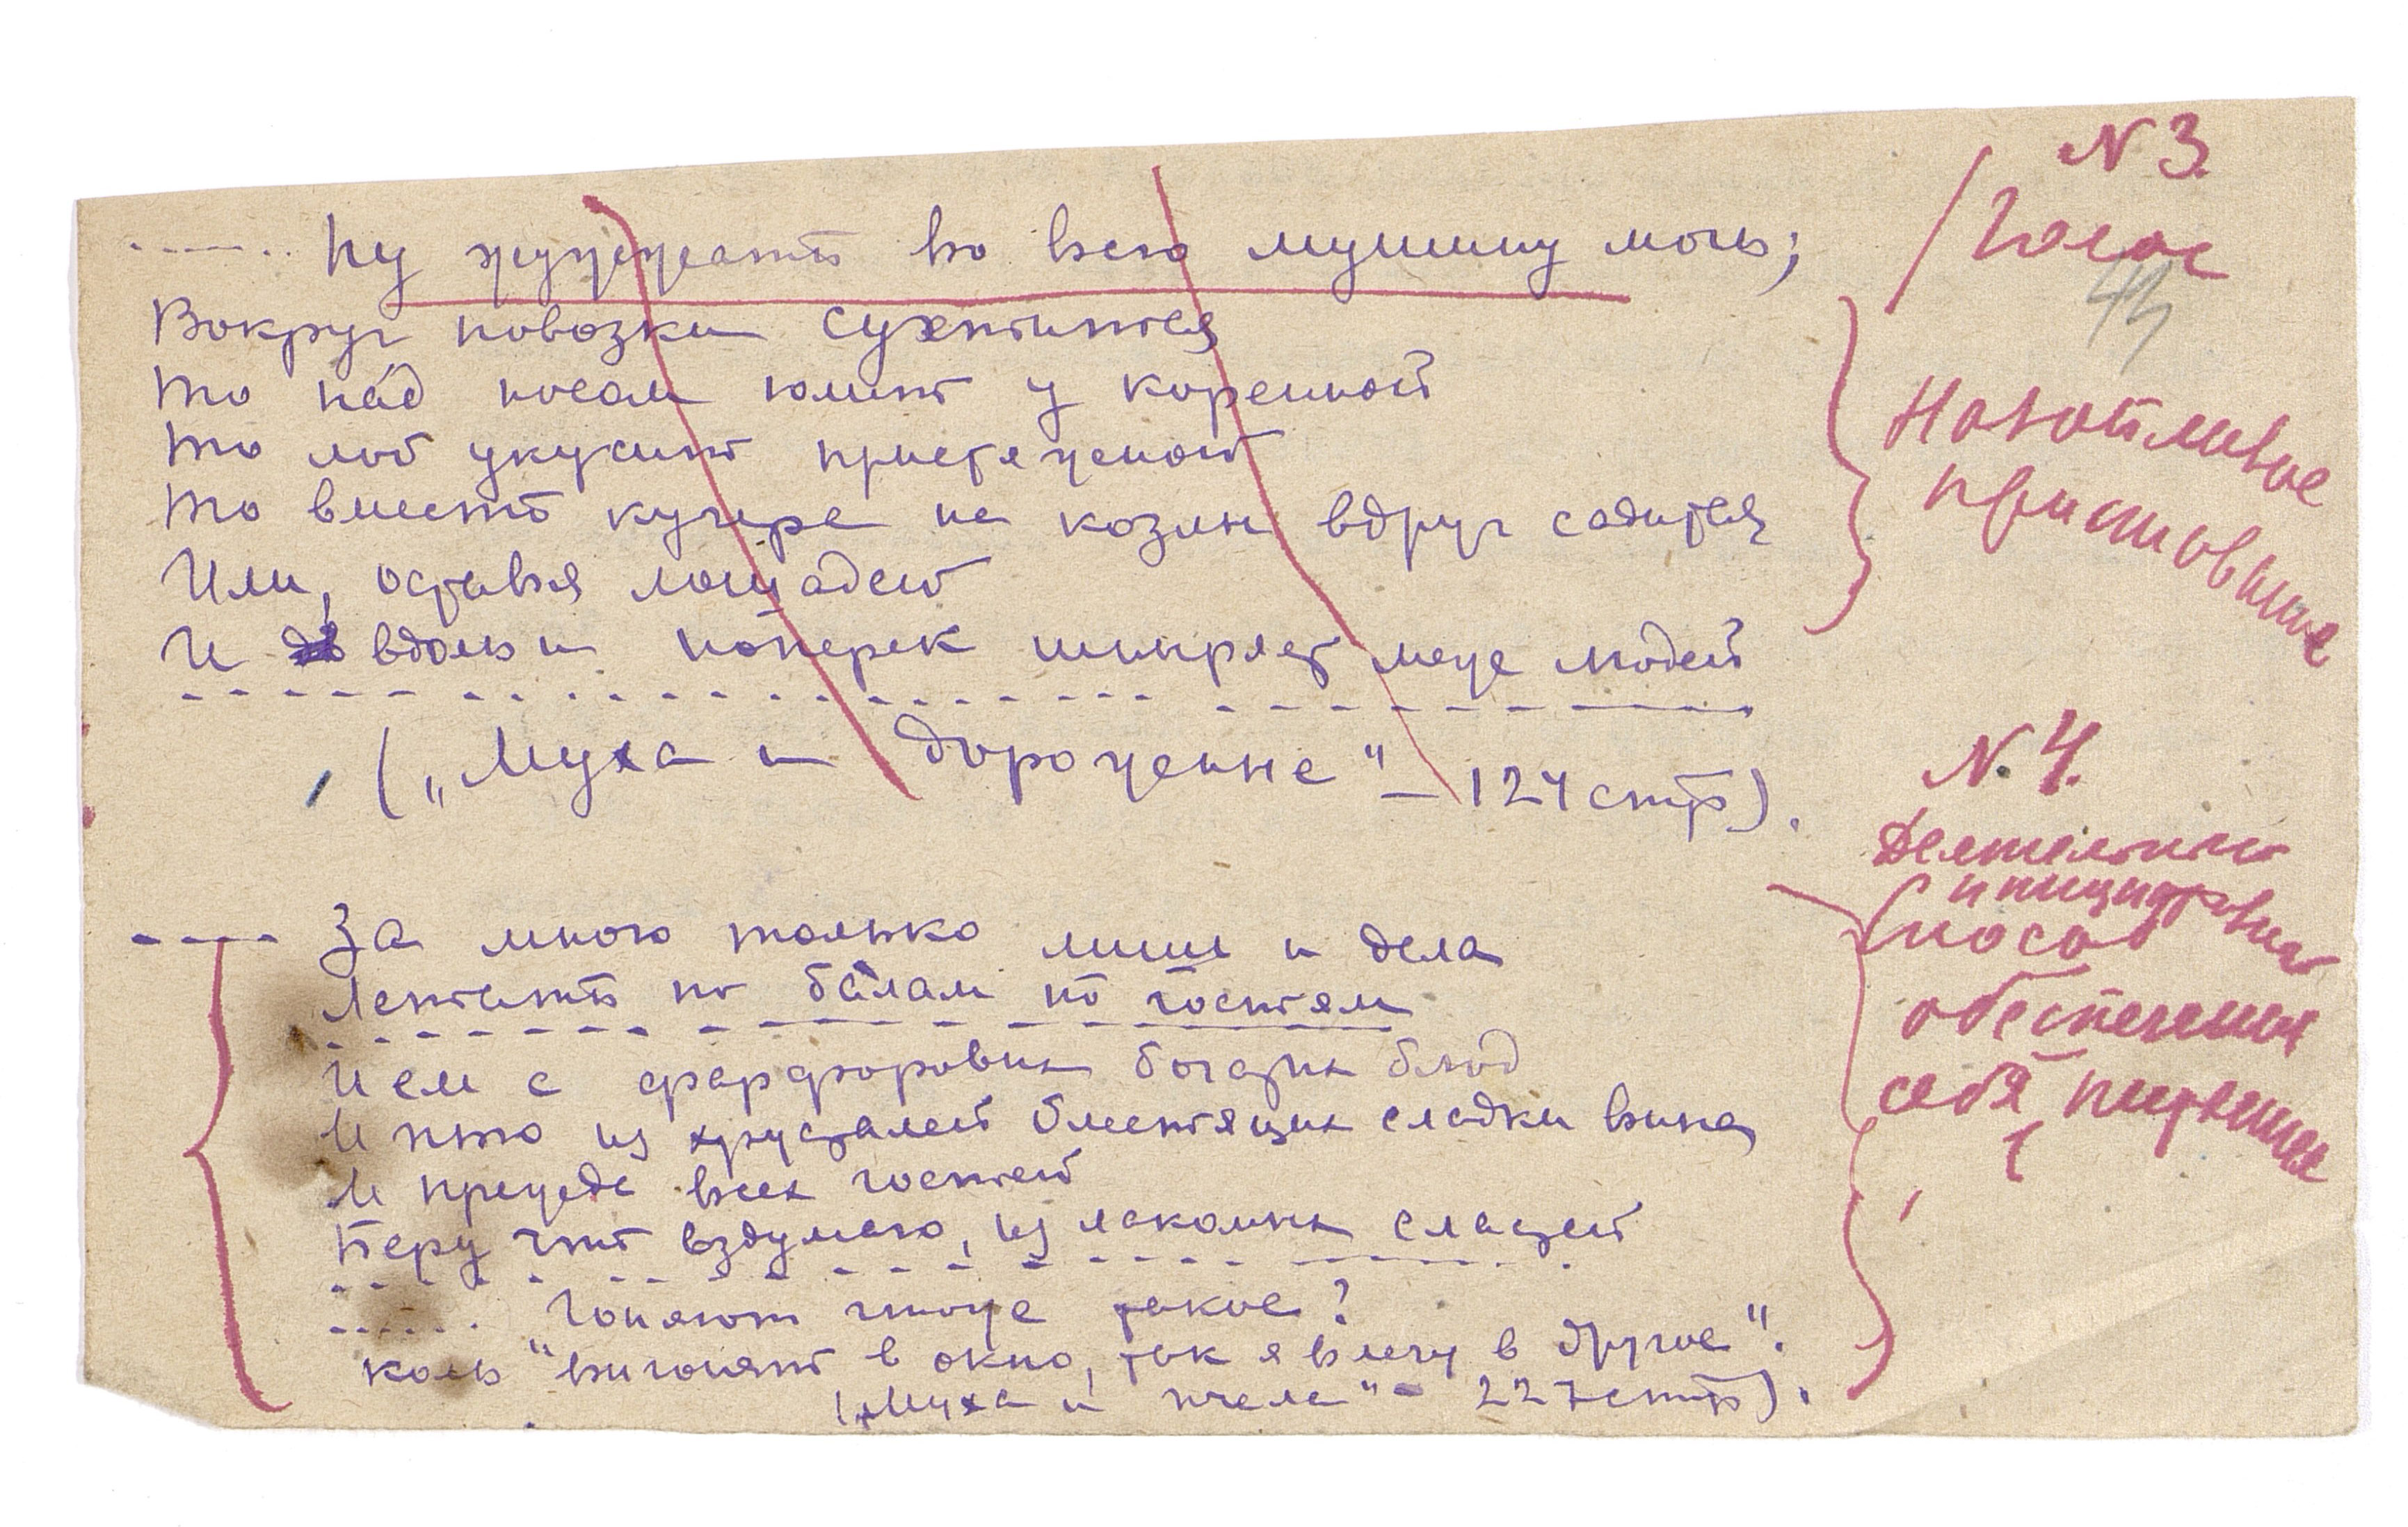 N 3.
Голос
43
------.. Ну жужжать во всю мушину мочь;
Вокруг повозки суетится
То над носом юлит у коренной
То лоб укусит пристяжной
То вместо кучера на козлы вдруг садится
Или, оставя лошадей
И вдоль и поперек шныряет меж людей
Назойливое
приставание
(„Муха и дорожные" – 124 стр).
N. 4.
---- За мною только лишь и дела
Летать по балам по гостям
И ем с фарфоровых богатых блюд
И пью из хрусталей блестящих сладки вина
И прежде всех гостей
Беру что вздумаю, из лакомых сластей
...... Гоняют чтоже такое?
коль "выгонят в окно, так я влечу в другое".
(„Муха и пчела" – 227 стр).
способ
обеспечения
себя питанием